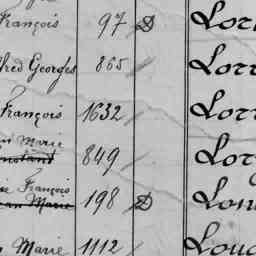 François 97 D Lor
fred Georges 865 Lorr
François 1632 Lorr
Marie
Constant 849 Lor
François
Jean Marie 198 D Lou
Marie 1112 Loud